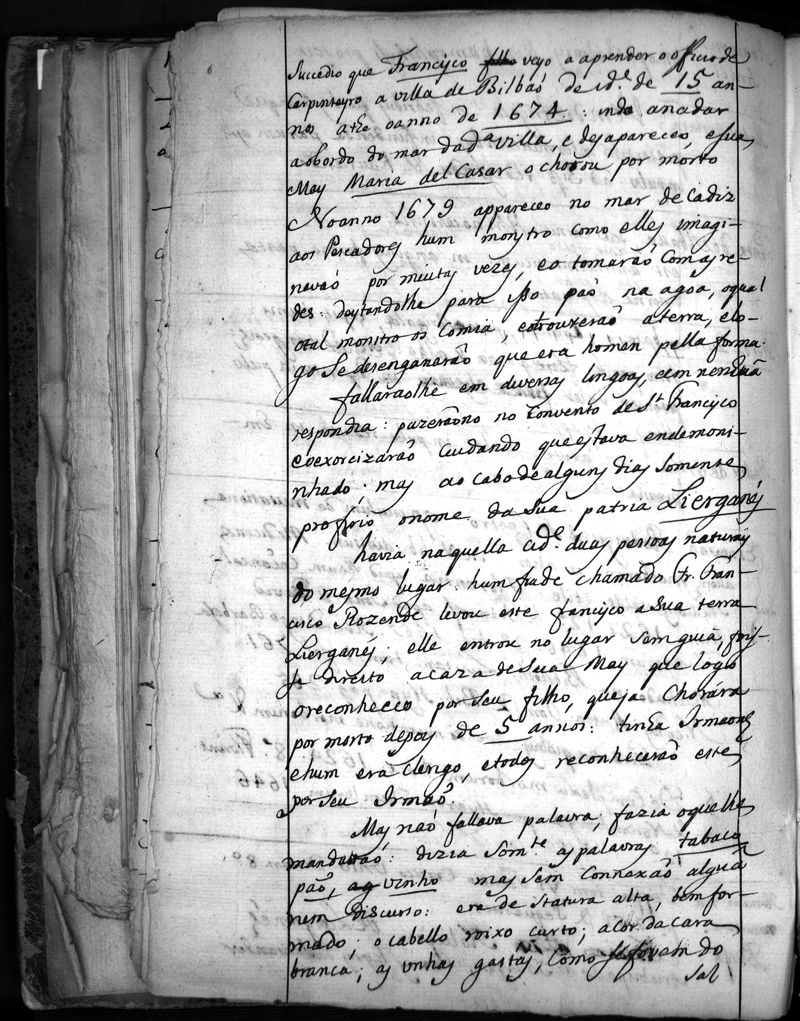 Succedio que Francisco veyo a aprender o officio de
Carpinteyro a villa de Bilbaó de id.e de 15 an-
nos athe oanno de 1674 : indo anadar
abordo do mar dad.a villa, e desapareceo, esua
May Maria del Casar o chorou por morto
Noanno 1679 appareceo no mar de Cadiz
aos Pescadores hum monstro como elles imagi-
navaó por muitas vezes, eo tomaraó Comas re-
des: deytandolhe para isso paó na agoa, oqual
otal monstro os Comia, eotrouxeraó aterra, elo-
go Se desenganaraó que era homen pella forma.
fallaraolhe em diversas lingoas, eem nenhuã
respondia: puzeraono no Convento de S.t Francisco
eoexorcizaraó Cuidando que estava endemoni-
nhado. mas ao cabo de alguns dias somente
proferio onome da Sua patria Lierganés
havia naquella cid.e duas pessoas naturais
do mesmo lugar. hum frade chamado Fr. Fran-
cisco Rozende levou este francisco a Sua terra
Lierganés; elle entrou no lugar sem guia, foy-
se direito acaza de Sua May que logo
oreconheceo por Seu filho, queja Chorára
por morto depois de 5 annos: tinha Irmaons
ehum era Clerigo, etodos reconheceraó este
por Seu Irmaó.
Mas naó fallava palavra; fazia oquelhe
mandavaó: dizia Som.te as palavras tabaco
paó, vinho mas sem Connexaó algua
nem discurso: era de statura alta, bem for-
mado; o cabello roixo curto; acor da cara
branca; as vnhas gastas, como do
sal